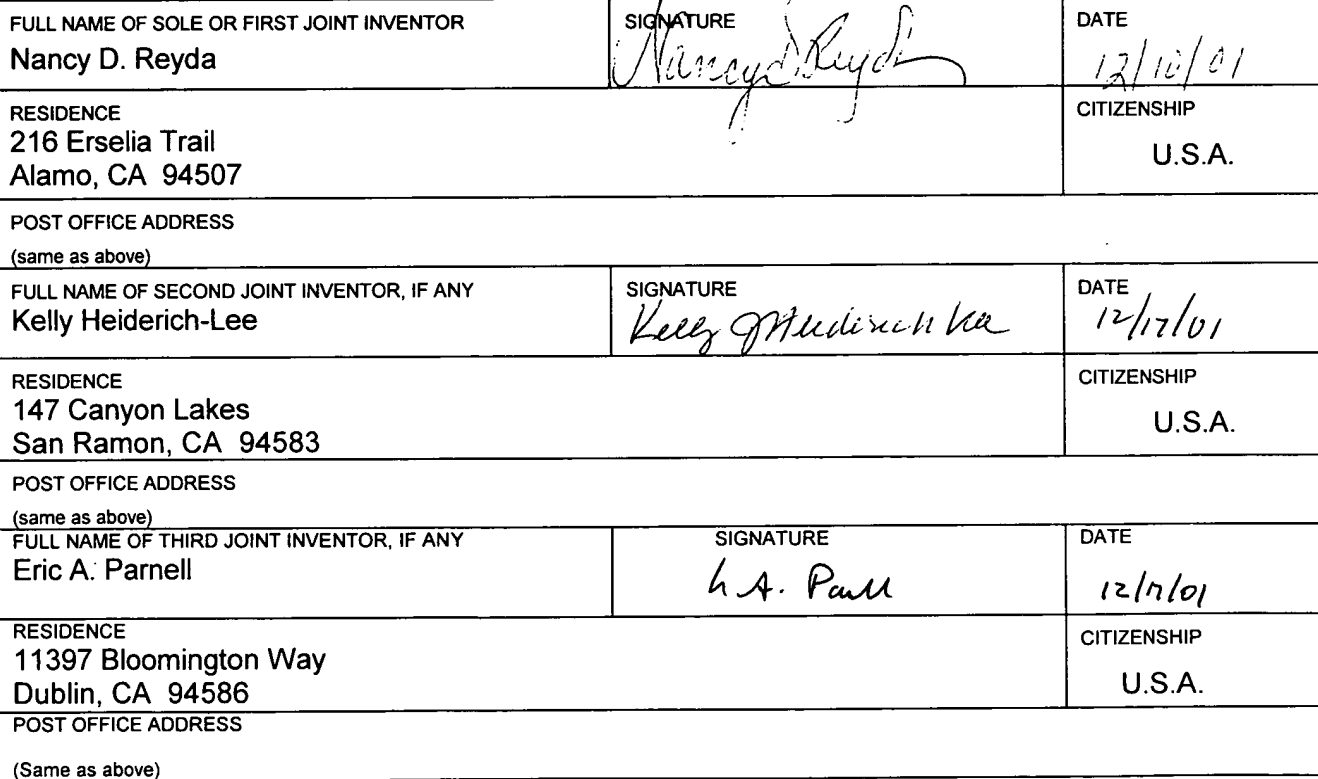 FULL NAME OF SOLE OR FIRST JOINT INVENTOR
Nancy D. Reyda
SIGNATURE
Nancy D. Reyda
DATE
12/10/01
RESIDENCE
216 Erselia Trail
Alamo, CA 94507
CITIZENSHIP
U.S.A.
POST OFFICE ADDRESS
(same as above)
FULL NAME OF SECOND JOINT INVENTOR, IF ANY
Kelly Heiderich-Lee
SIGNATURE
Kelly
DATE
12/17/01
RESIDENCE
147 Canyon Lakes
San Ramon, CA 94583
CITIZENSHIP
U.S.A.
POST OFFICE ADDRESS
(same as above)
FULL NAME OF THIRD JOINT INVENTOR, IF ANY
Eric A. Parnell
SIGNATURE
A.
DATE
12/17/01
RESIDENCE
11397 Bloomington Way
Dublin, CA 94586
CITIZENSHIP
U.S.A.
POST OFFICE ADDRESS
(Same as above)